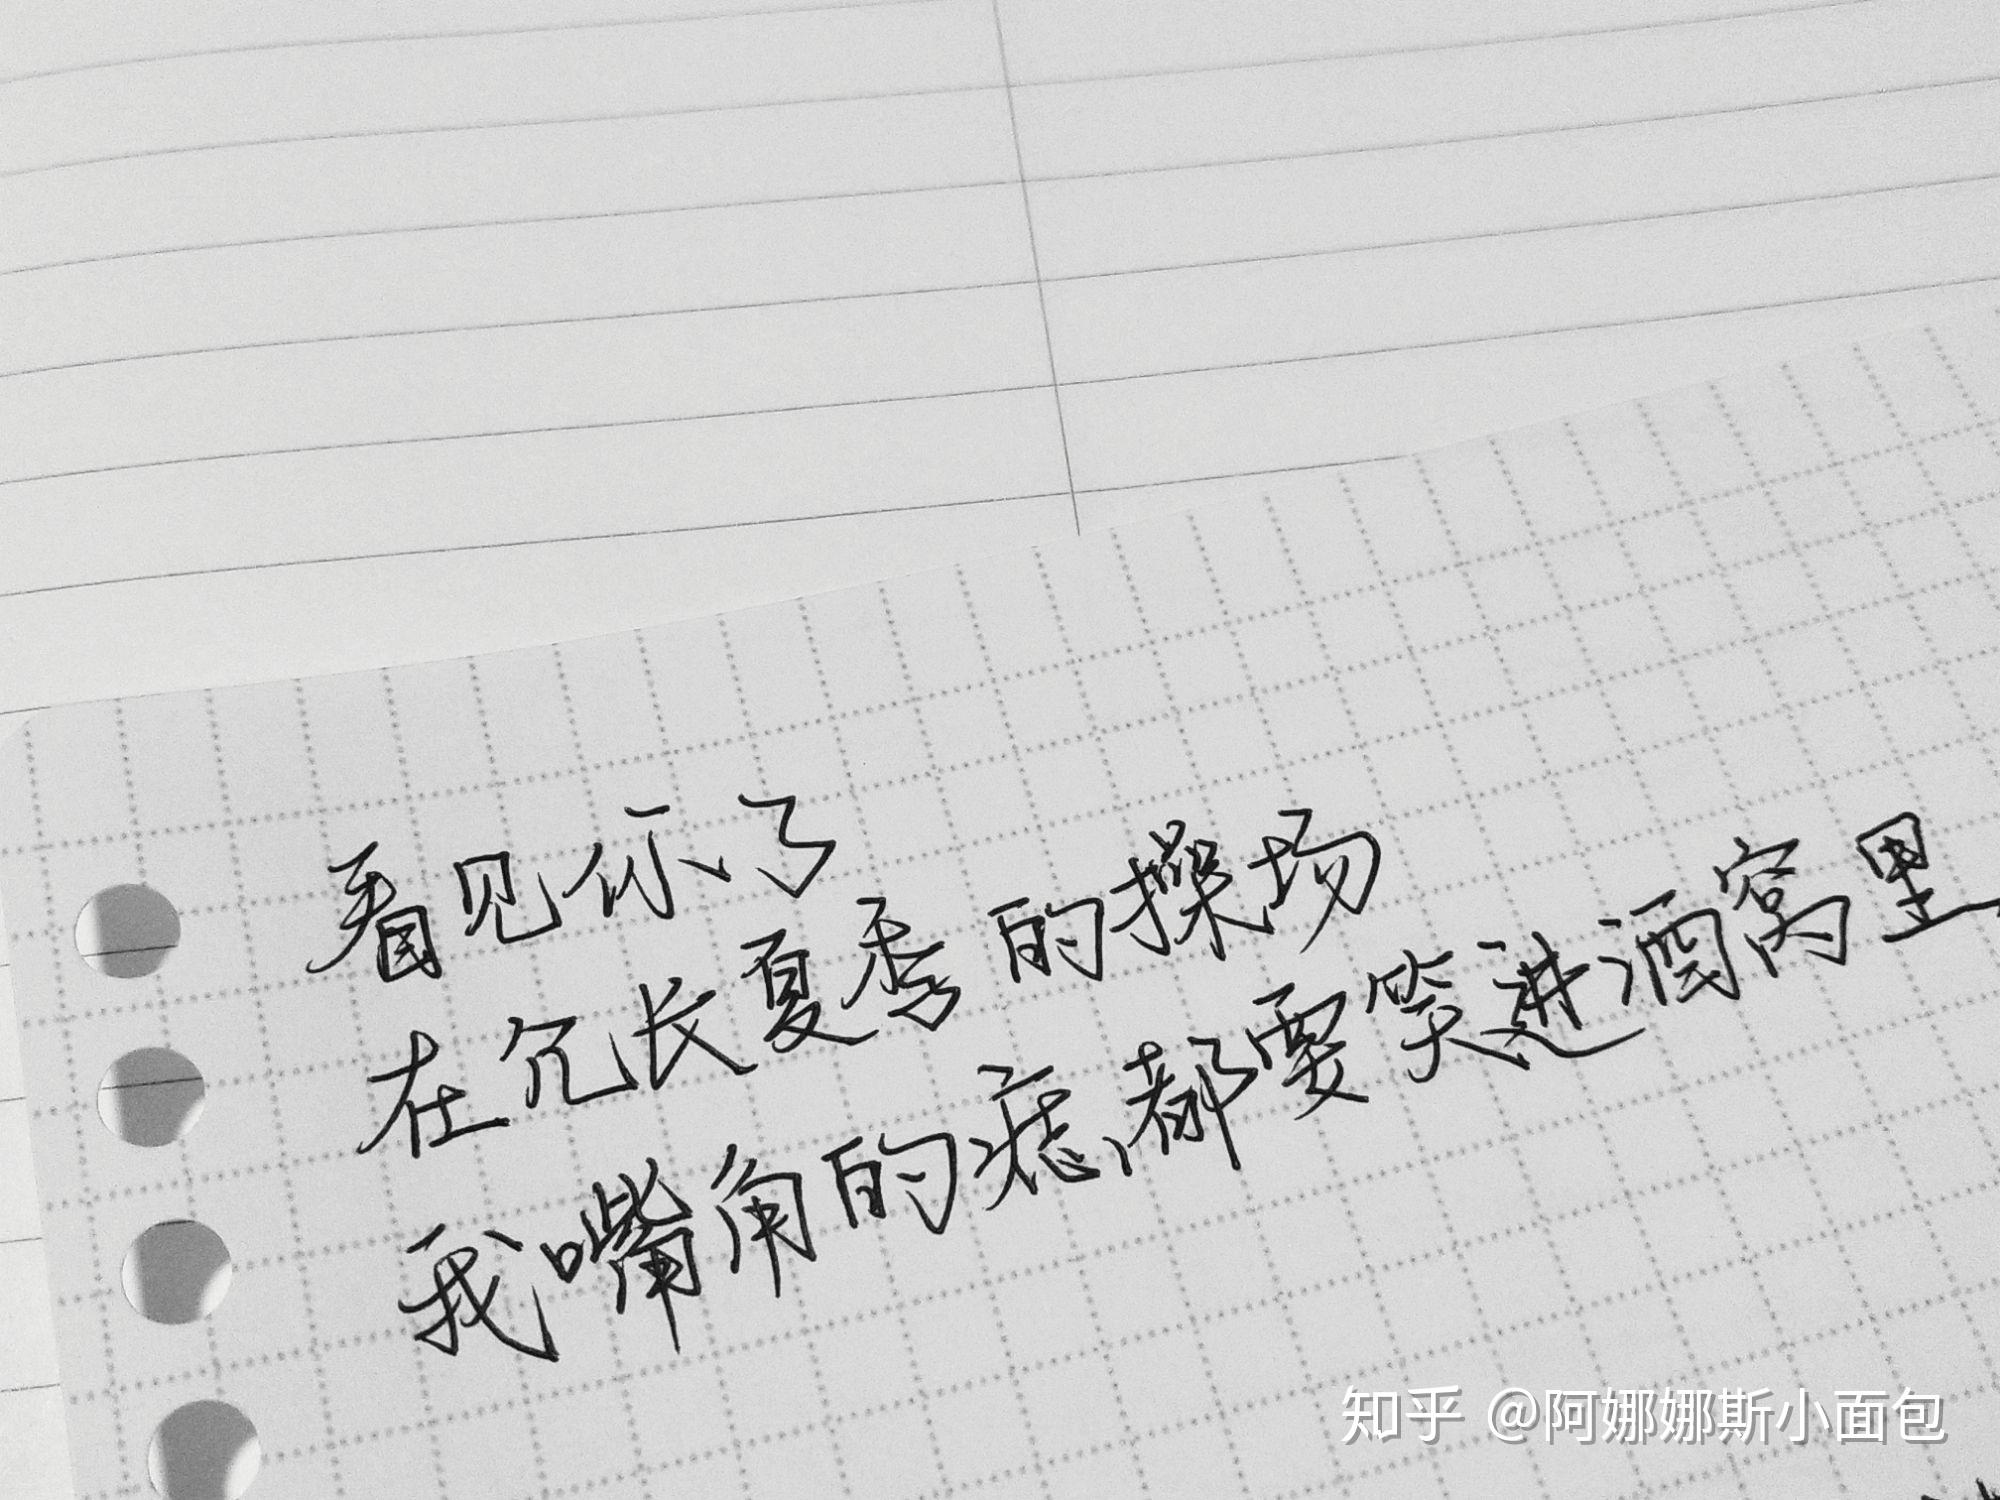 看见你了
在冗长夏季的操场
我嘴角的痣,都要笑进酒窝里
知乎 @阿娜娜斯小面包